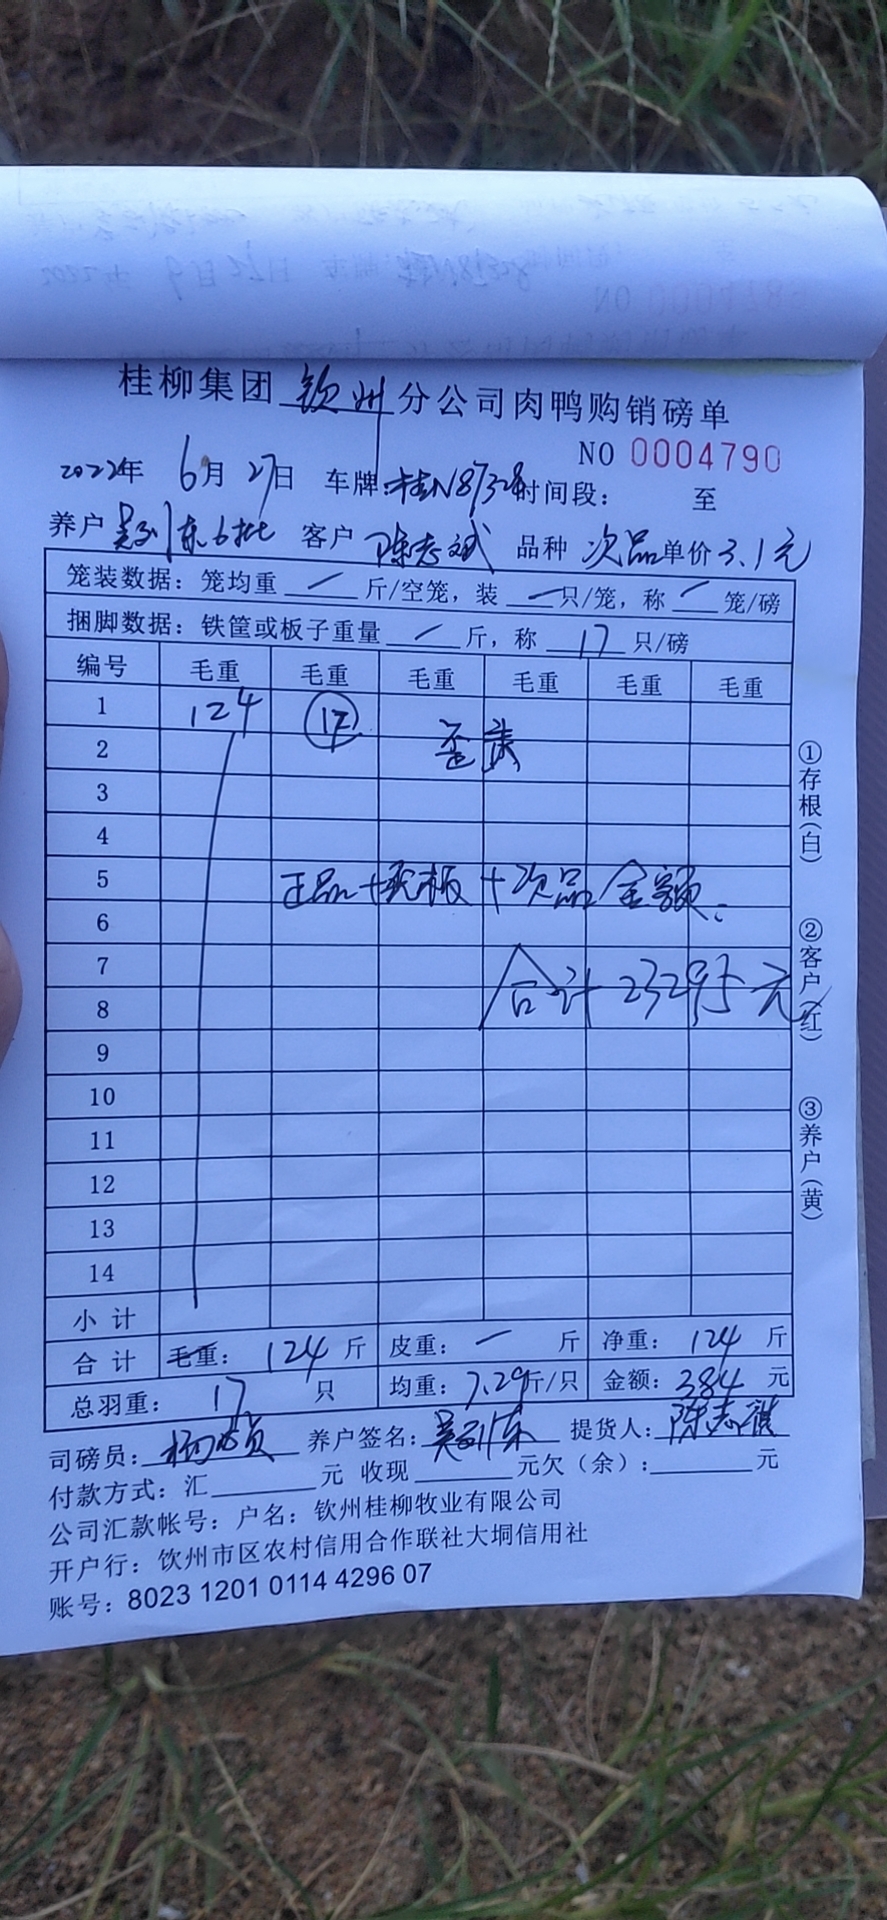 桂柳集团 钦州 分公司肉鸭购销磅单
NO 0004790
2022年 6月 27日 车牌: 桂N8732 时间段: 至
养户 吴 东6批 客户 陈志斌 品种 次品 单价 3.1元
笼装数据: 笼均重 — 斤/空笼, 装 — 只/笼, 称 — 笼/磅
捆脚数据: 铁筐或板子重量 — 斤, 称 17 只/磅
编号 毛重 毛重 毛重 毛重 毛重 毛重
1 124 17
2 歪
3
4
5 正品+ 板+次品金额:
6
7 合计 23295元
8
9
10
11
12
13
14
小计
合计 毛重: 124 斤 皮重: — 斤 净重: 124 斤
总羽重: 17 只 均重: 7.29斤/只 金额: 384 元
司磅员: 杨 养户签名: 吴 东 提货人: 陈志
付款方式: 汇 元 收现 元欠(余): 元
公司汇款帐号: 户名: 钦州桂柳牧业有限公司
开户行: 钦州市区农村信用合作联社大垌信用社
账号: 8023 1201 0114 4296 07
①存根(白)
②客户(红)
③养户(黄)